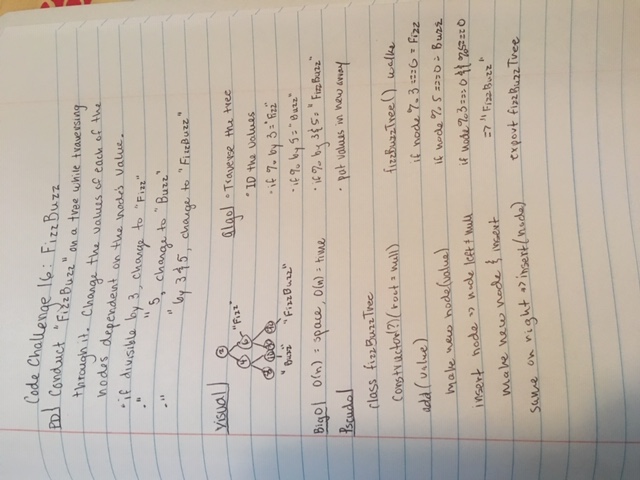 Code Challenge 16: FizzBuzz
PD] Conduct "FizzBuzz" on a tree while traversing
through it. Change the values of each of the
nodes dependent on the node's value.
• if divisible by 3, change to "Fizz"
• " " 5, change to "Buzz"
• " " by 3 & 5, change to "FizzBuzz"
Visual]
2
4 6 "Fizz"
"Buzz" "FizzBuzz"
algo] • Traverse the tree
• ID the values
• if % by 3 = "Fizz"
• if % by 5 = "Buzz"
• if % by 3 & 5 = "FizzBuzz"
• put values in new array
BigO] O(n) = space, O(n) = time
Pseudo]
class fizzBuzzTree
constructor(?)(root = null)
add(value)
make new node(value)
insert node => node left + null
make new node & insert
same on right => insert(node)
fizzBuzzTree() walke
if node % 3 === 0 = Fizz
if node % 5 === 0 = Buzz
if node % 3 === 0 && % 5 === 0
=> "FizzBuzz"
export fizzBuzzTree